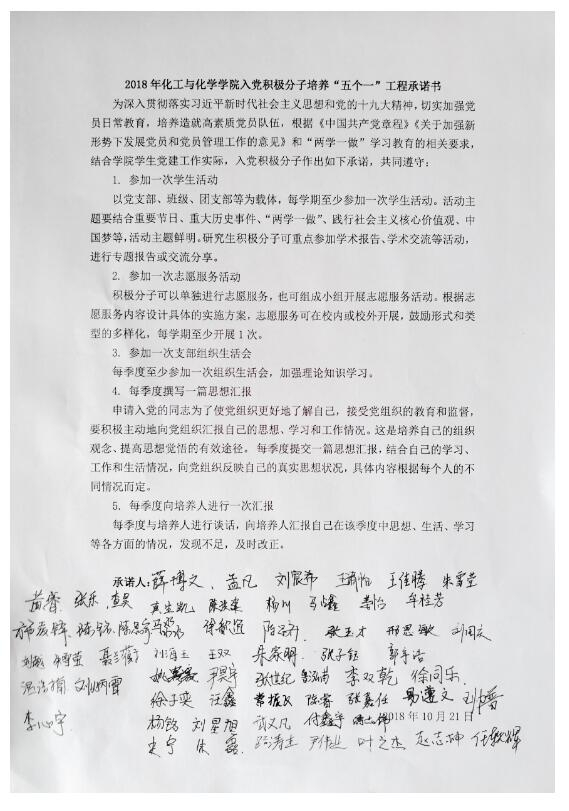 2018年化工与化学学院入党积极分子培养“五个一”工程承诺书
为深入贯彻落实习近平新时代社会主义思想和党的十九大精神，切实加强党
员日常教育，培养造就高素质党员队伍，根据《中国共产党章程》《关于加强新
形势下发展党员和党员管理工作的意见》和“两学一做”学习教育的相关要求，
结合学院学生党建工作实际，入党积极分子作出如下承诺，共同遵守：
1. 参加一次学生活动
以党支部、班级、团支部等为载体，每学期至少参加一次学生活动。活动主
题要结合重要节日、重大历史事件、“两学一做”、践行社会主义核心价值观、中
国梦等，活动主题鲜明。研究生积极分子可重点参加学术报告、学术交流等活动，
进行专题报告或交流分享。
2. 参加一次志愿服务活动
积极分子可以单独进行志愿服务，也可组成小组开展志愿服务活动。根据志
愿服务内容设计具体的实施方案，志愿服务可在校内或校外开展，鼓励形式和类
型的多样化，每学期至少开展1次。
3. 参加一次支部组织生活会
每季度至少参加一次组织生活会，加强理论知识学习。
4. 每季度撰写一篇思想汇报
申请入党的同志为了使党组织更好地了解自己，接受党组织的教育和监督，
要积极主动地向党组织汇报自己的思想、学习和工作情况。这是培养自己的组织
观念、提高思想觉悟的有效途径。每季度提交一篇思想汇报，结合自己的学习、
工作和生活情况，向党组织反映自己的真实思想状况，具体内容根据每个人的不
同情况而定。
5. 每季度向培养人进行一次汇报
每季度与培养人进行谈话，向培养人汇报自己在该季度中思想、生活、学习
等各方面的情况，发现不足，及时改正。
承诺人：薛博文 孟凡 刘宸希 王佳腾 朱雪莹
苗睿 张乐 杨帆 牟桂芳
张玉才 邢思敏 刘国庆
王双 朱家明 张子钰 郭宇浩
张世纪 李双乾 徐同乐
徐子奕 汪鑫 常振民 陈睿 张嘉任 易遵文
李心宇 2018年10月21日
杨铭 刘星旭 武文凡 付鑫宇
史宁 朱磊 尹伟业 叶之杰 赵志坤 任毅辉